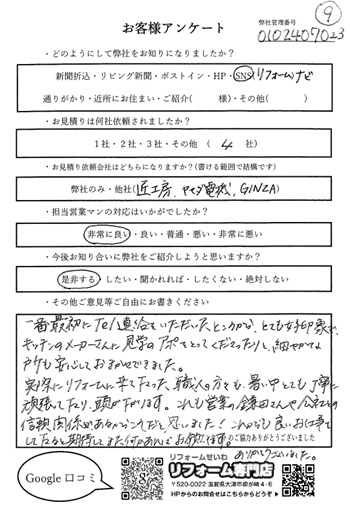 ⑨
お客様アンケート
弊社管理番号
0102407023
・どのようにして弊社をお知りになりましたか？
新聞折込・リビング新聞・ポストイン・HP・SNS(リフォームナビ
通りがかり・近所にお住まい・ご紹介(　　様)・その他(　　)
・お見積りは何社依頼されましたか？
1社・2社・3社・その他 ( 4 社)
・お見積り依頼会社はどちらになりますか？(書ける範囲で結構です)
弊社のみ・他社(匠工房、ヤマダ電機、GINZA)
・担当営業マンの対応はいかがでしたか？
非常に良い・良い・普通・悪い・非常に悪い
・今後お知り合いに弊社をご紹介しようと思いますか？
是非する・したい・聞かれれば・したくない・絶対しない
・その他ご意見等ご自由にお書きください
一番最初にTel連絡をいただいたところから、とても好印象で、
キッチンのメーカーさんに見学のアポをとってくださったりと、細やかで
とても安心しておまかせできました。
実際にリフォームに来て下さった職人の方も、暑い中とても丁寧に
頑張って下さり、頭が下がります。これも営業の鎌田さんや会社との
信頼関係があるからこそだと思いました！これからも良いお仕事を
して下さると期待して、また何かあればお願いします。
のご協力ありがとうございました
ありがとうございました。
Google 口コミ
リフォームせいわ
リフォーム専門店
〒520-0022 滋賀県大津市柳が崎4-6
HPからのお問合せはこちらからどうぞ